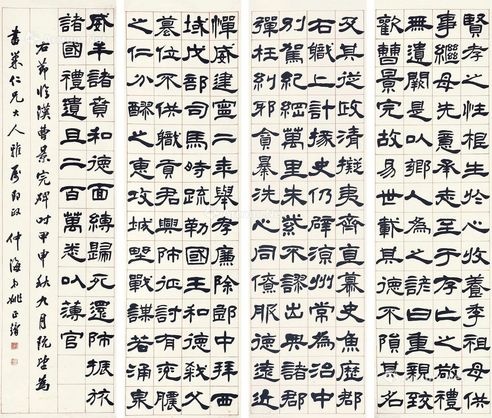 賢孝之性根生於心收季祖母供
事繼母先意承志存亡之敬禮
無遺闕是以鄉人為之諺曰重親致
歡曹景完故易世載其德不隕其名
及其從政清擬夷齊直慕史魚歷郡
右職上計掾史仍辟涼州常為治中
別駕紀綱萬里朱紫不謬出典諸郡
彈枉糾邪貪暴洗心同僚服德遠近
憚威建寧二年舉孝廉除郎中拜西
域戊部司馬時疏勒國王和德弒父
篡位不供職貢君興師征討有兗膿
之仁分醪之惠攻城野戰謀若涌泉
威牟諸賁和德面縛歸死還師振旅
諸國禮遺且二百萬悉以薄官
右節臨漢曹景完碑時甲申秋九月既望為
仁兄大人雅屬即政仲海弟姚正鏞